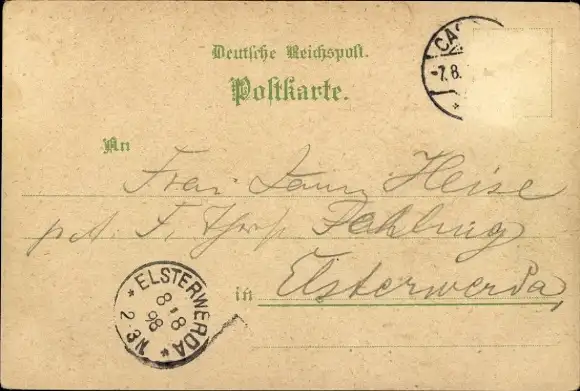 Deutsche Reichspost.
Postkarte.
CA
-7.8.
An
Frau Heise
Fehling
in Elsterwerda,
* ELSTERWERDA *
8 8
98
2-3 N